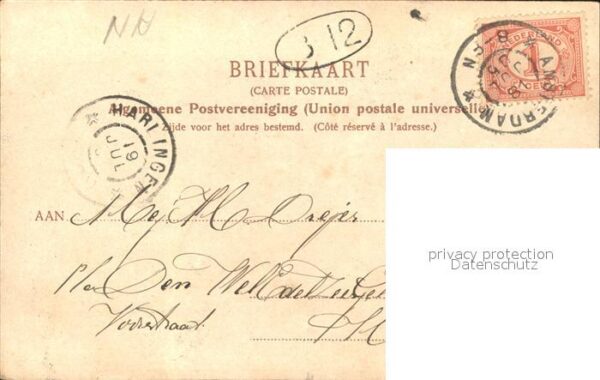 NH
3 12
BRIEFKAART
(CARTE POSTALE)
Algemeene Postvereeniging (Union postale universelle)
Zijde voor het adres bestemd. (Côté réservé à l'adresse.)
NEDERLAND
1
CENT
AMSTERDAM
HARLINGEN
19
JUL
AAN Mej M Dreijer
p/a Den Wel Ed
Voorstraat
privacy protection
Datenschutz